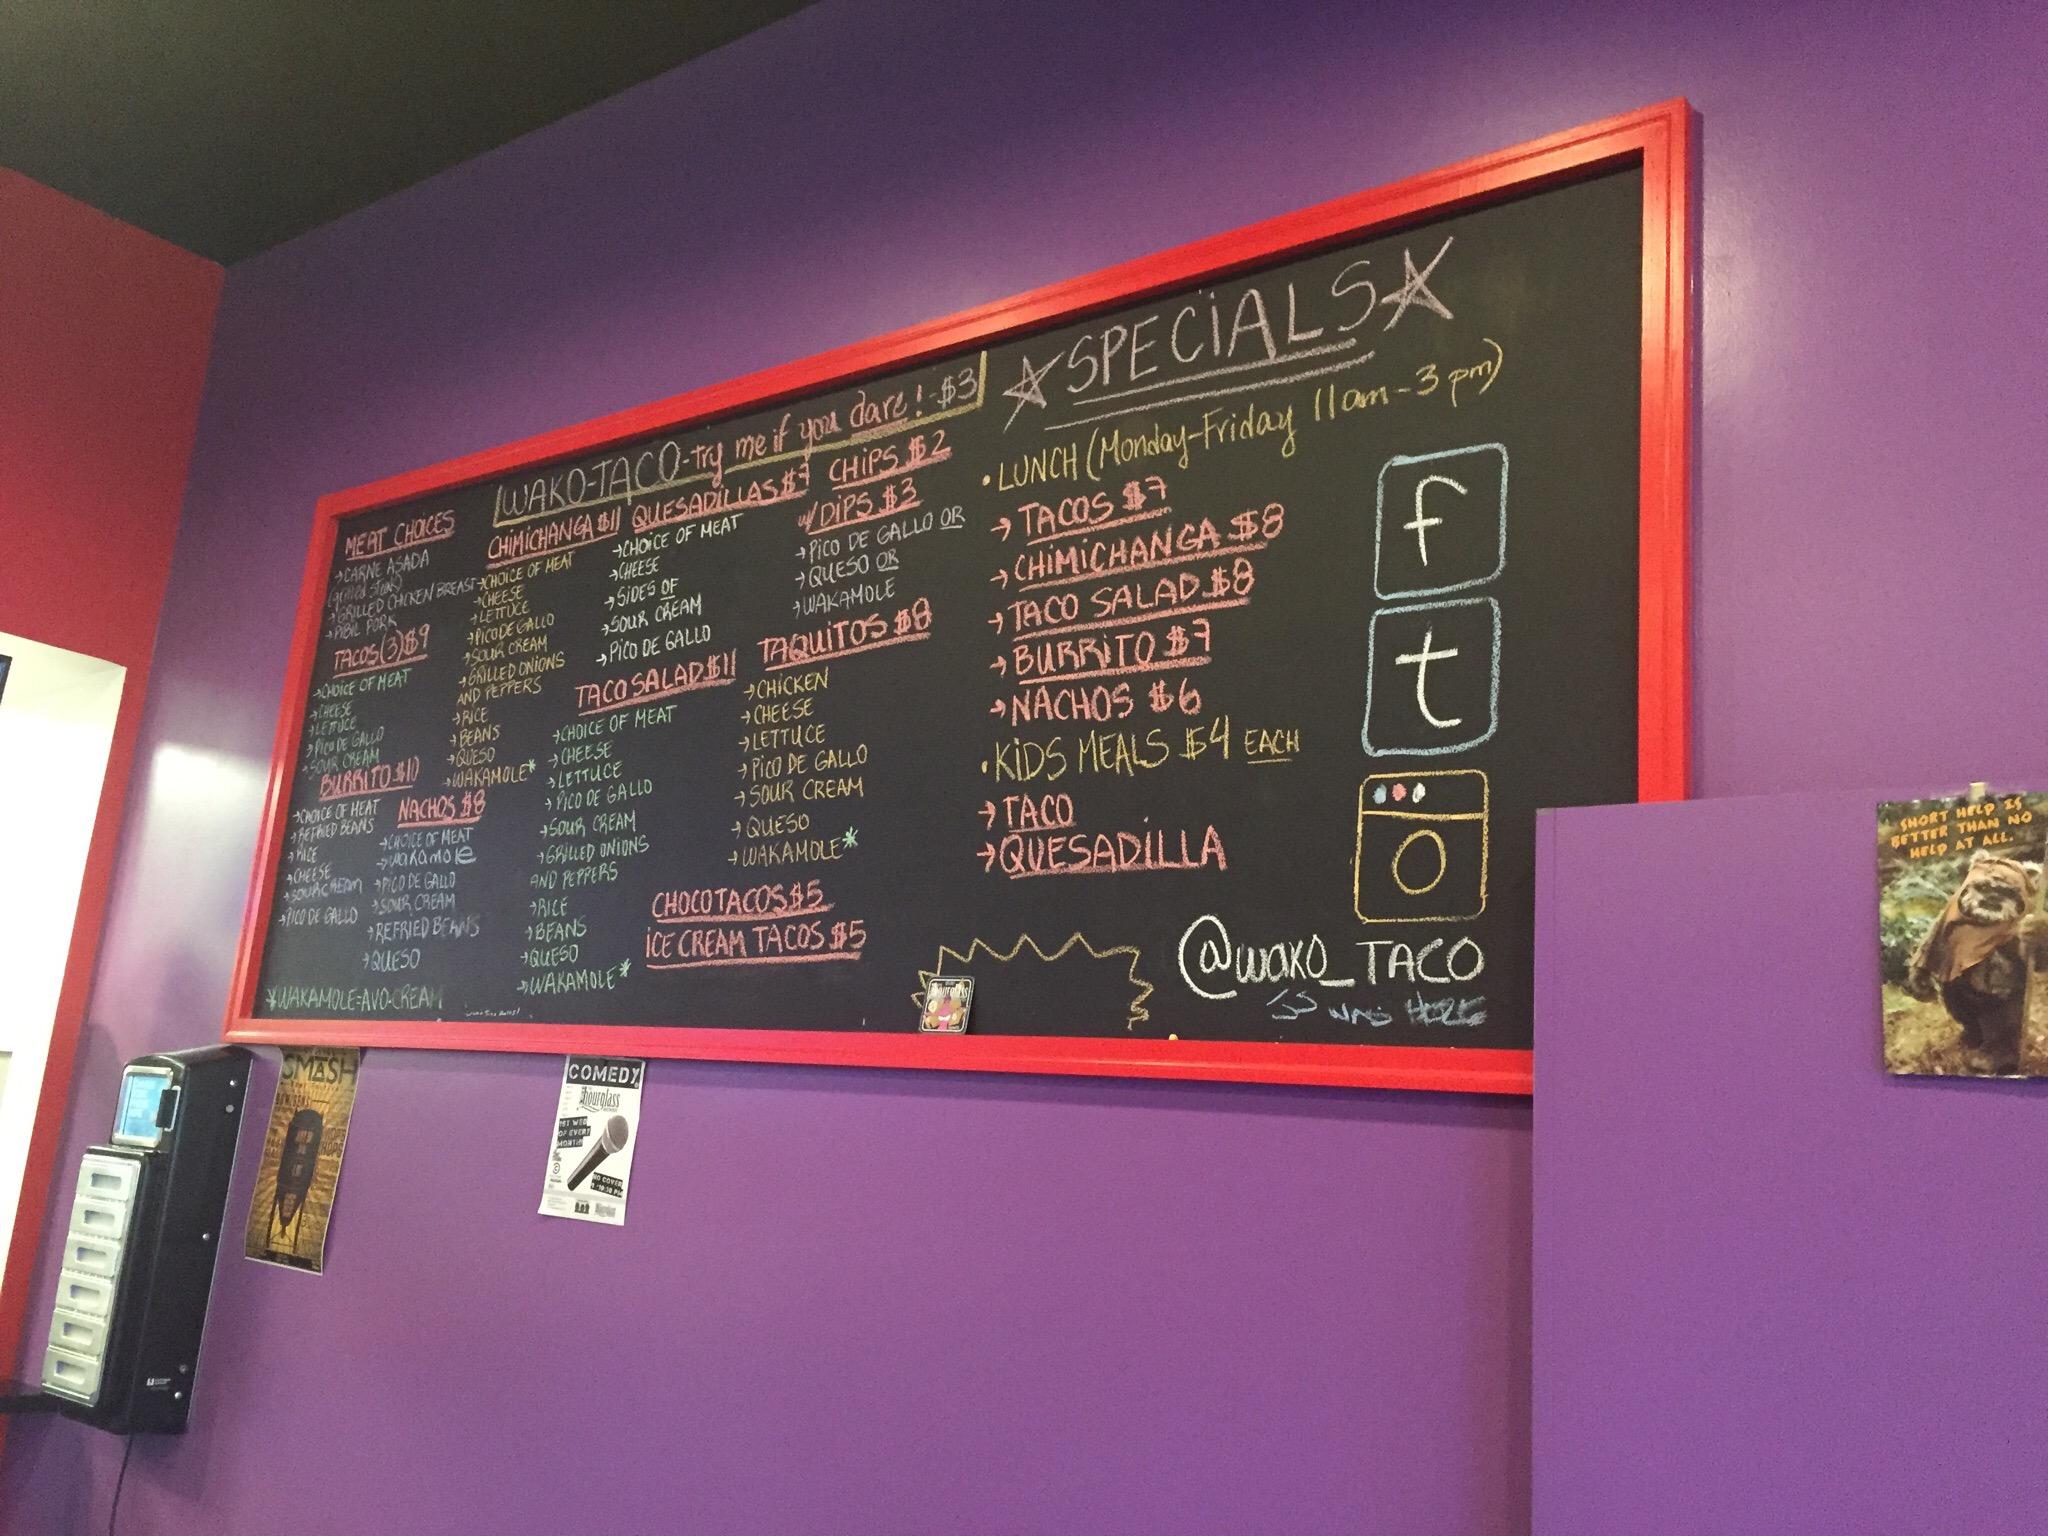 WAKO-TACO-try me if you dare!-$3
MEAT CHOICES
→CARNE ASADA
(grilled steak)
→GRILLED CHICKEN BREAST
→PIBIL PORK
TACOS (3) $9
→CHOICE OF MEAT
→CHEESE
→LETTUCE
→PICO DE GALLO
→SOUR CREAM
BURRITO $10
→CHOICE OF MEAT
→REFRIED BEANS
→RICE
→CHEESE
→SOUR CREAM
→PICO DE GALLO
*WAKAMOLE=AVO-CREAM
NACHOS $8
→CHOICE OF MEAT
→WAKAMOLE
→PICO DE GALLO
→SOUR CREAM
→REFRIED BEANS
→QUESO
CHIMICHANGA $11
→CHOICE OF MEAT
→CHEESE
→LETTUCE
→PICO DE GALLO
→SOUR CREAM
→GRILLED ONIONS
AND PEPPERS
→RICE
→BEANS
→QUESO
→WAKAMOLE*
QUESADILLAS $7
→CHOICE OF MEAT
→CHEESE
→SIDES OF
→SOUR CREAM
→PICO DE GALLO
TACO SALAD $11
→CHOICE OF MEAT
→CHEESE
→LETTUCE
→PICO DE GALLO
→SOUR CREAM
→GRILLED ONIONS
AND PEPPERS
→RICE
→BEANS
→QUESO
→WAKAMOLE*
CHIPS $2
w/ DIPS $3
→PICO DE GALLO OR
→QUESO OR
→WAKAMOLE
TAQUITOS $8
→CHICKEN
→CHEESE
→LETTUCE
→PICO DE GALLO
→SOUR CREAM
→QUESO
→WAKAMOLE*
CHOCOTACOS $5
ICE CREAM TACOS $5
☆SPECIALS☆
•LUNCH (Monday-Friday 11am-3pm)
→TACOS $7
→CHIMICHANGA $8
→TACO SALAD $8
→BURRITO $7
→NACHOS $6
•KIDS MEALS $4 EACH
→TACO
→QUESADILLA
f
t
@WAKO_TACO
SS WAS HERE
hourglass
SMASH
COMEDY
hourglass
1ST WED
OF EVERY
MONTH
NO COVER
SHORT HELP IS
BETTER THAN NO
HELP AT ALL.